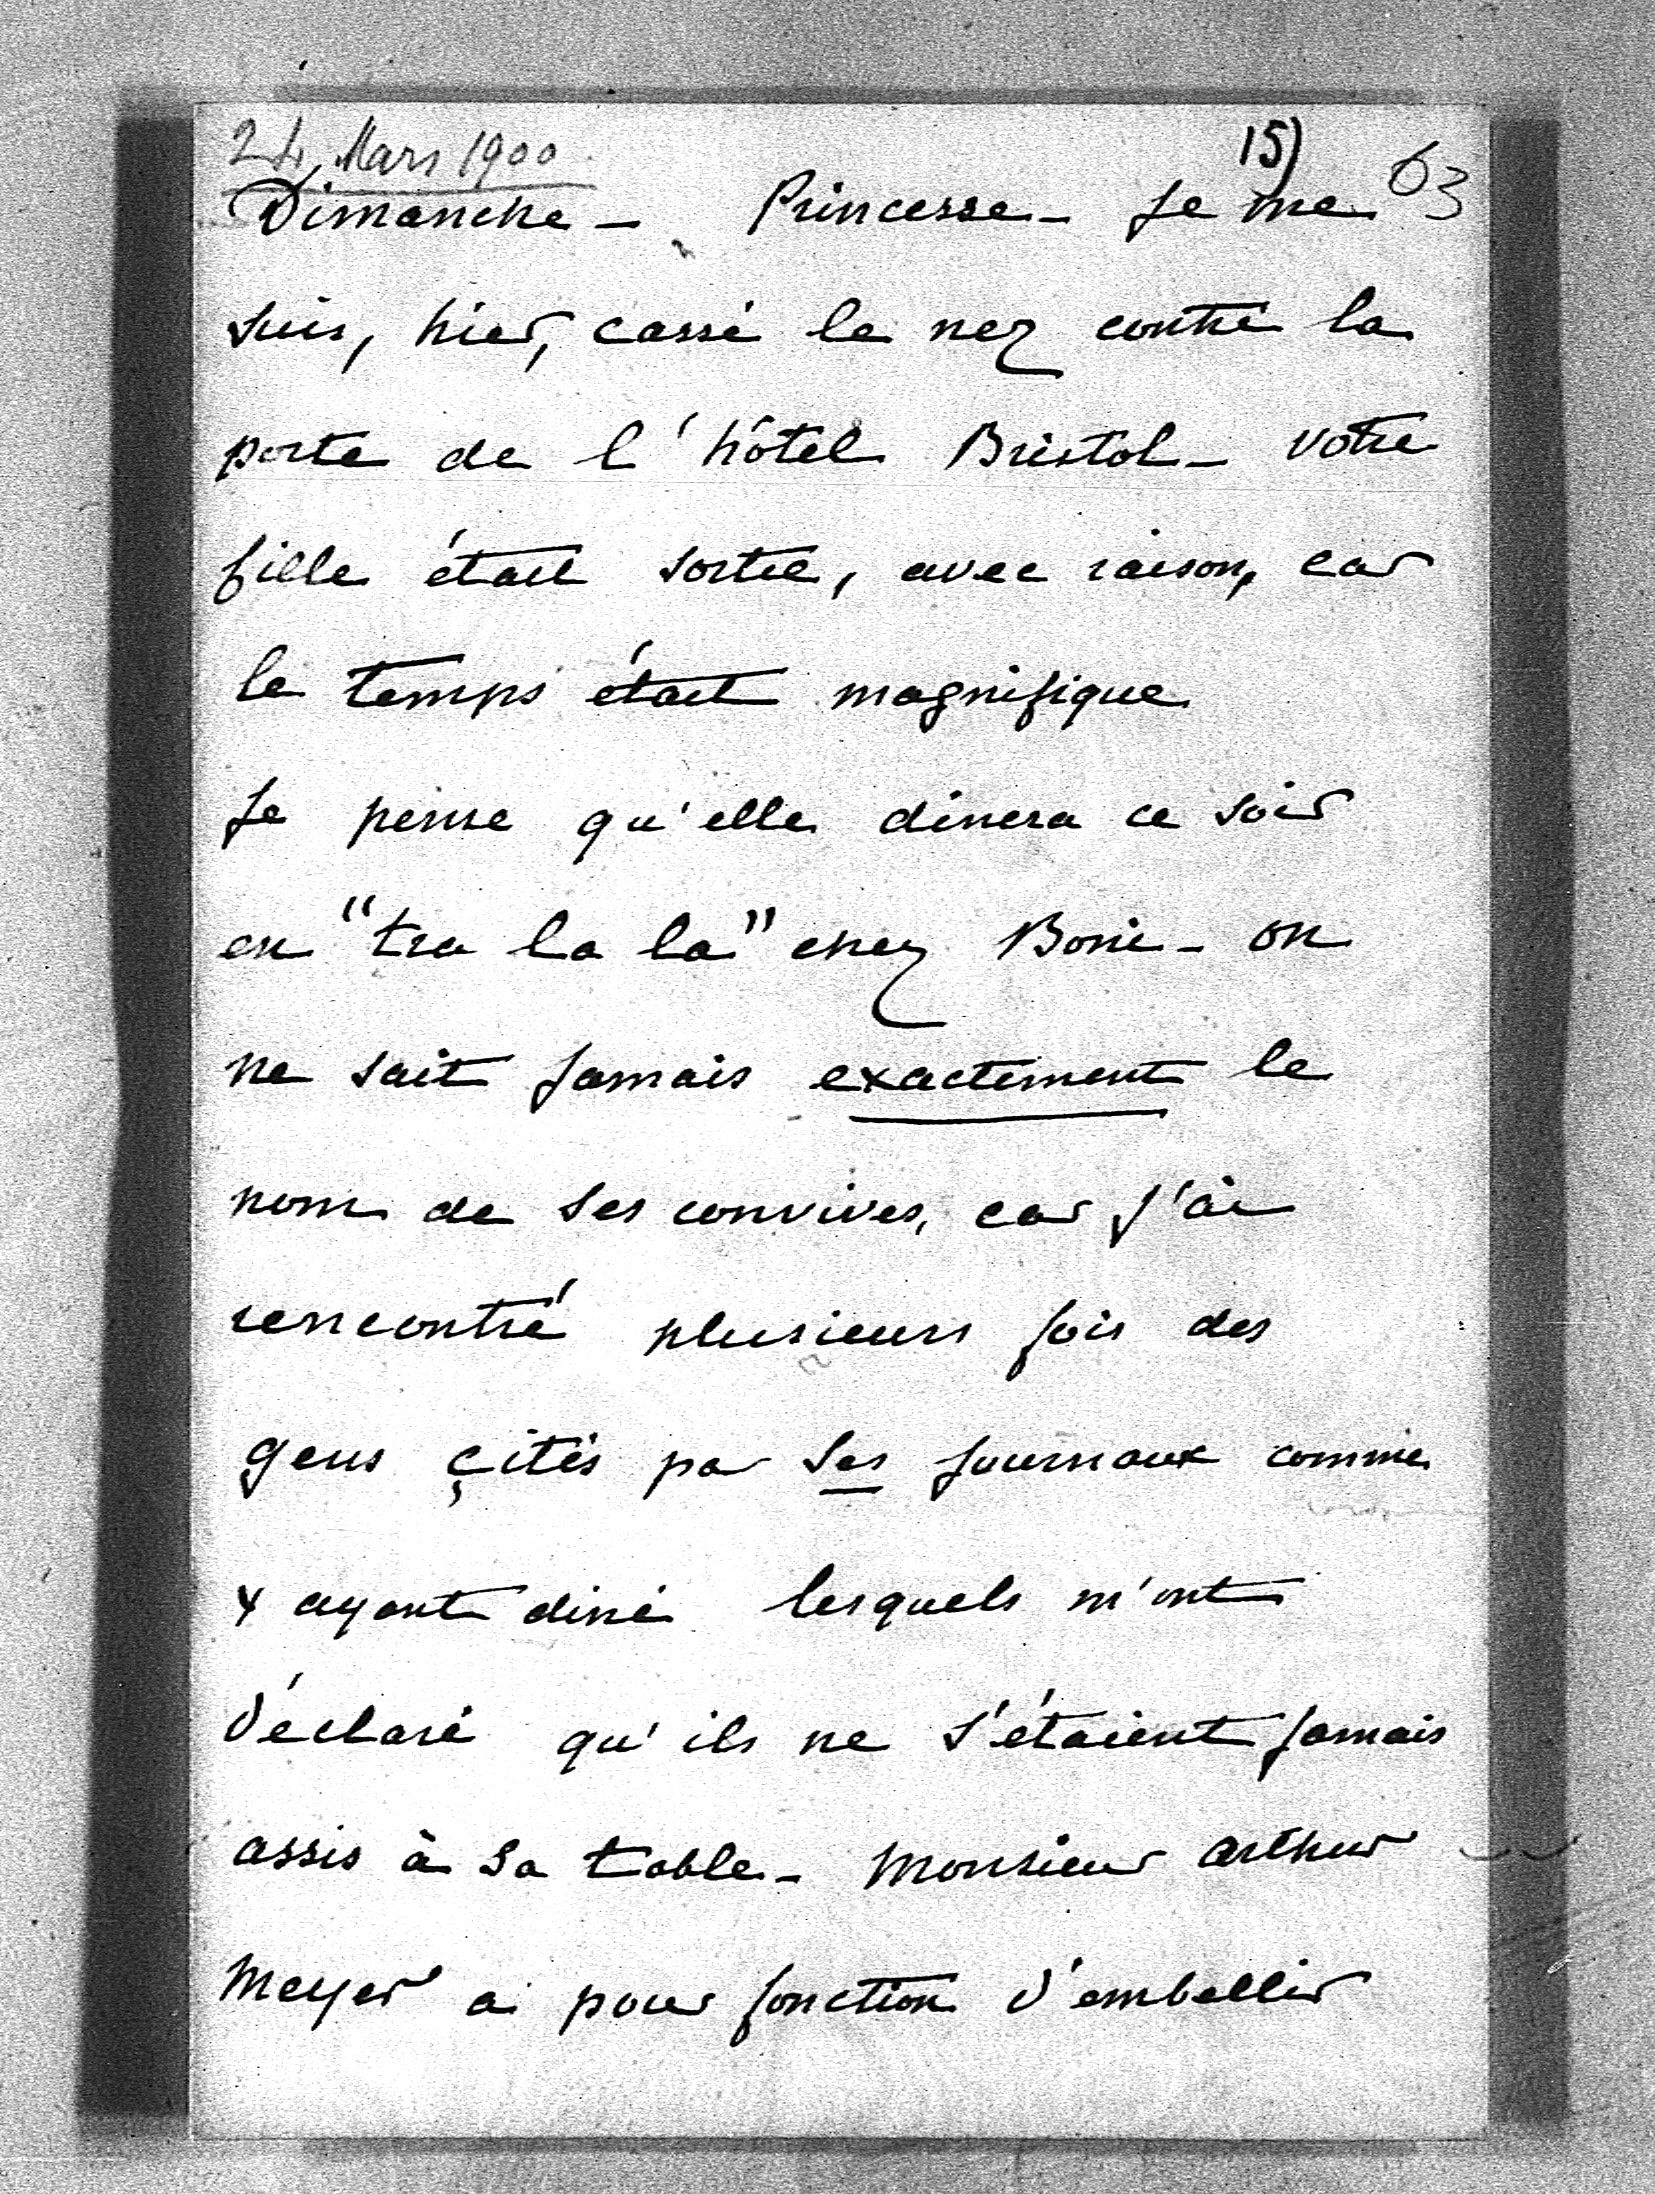 24 Mars 1900
15)
63
Dimanche - Princesse - Je me
suis, hier, cassé le nez contre la
porte de l'hôtel Bristol - votre
fille était sortie, avec raison, car
le temps était magnifique
Je pense qu'elle dinera ce soir
en "tra la la" chez Boni - on
ne sait jamais exactement le
nom de ses convives, car j'ai
rencontré plusieurs fois des
gens çités par ses journaux comme
y ayant diné lesquels m'ont
déclaré qu'ils ne s'étaient jamais
assis à sa table - Monsieur Arthur
Meyer a pour fonction d'embellir